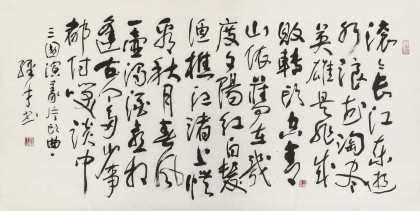 滚々长江东逝
水浪花淘尽
英雄是非成
败转头空青
山依舊在幾
度夕陽红白髮
渔樵江渚上惯
看秋月春风
一壶浊酒喜相
逢古今多少事
都付笑谈中
三國演義片头曲